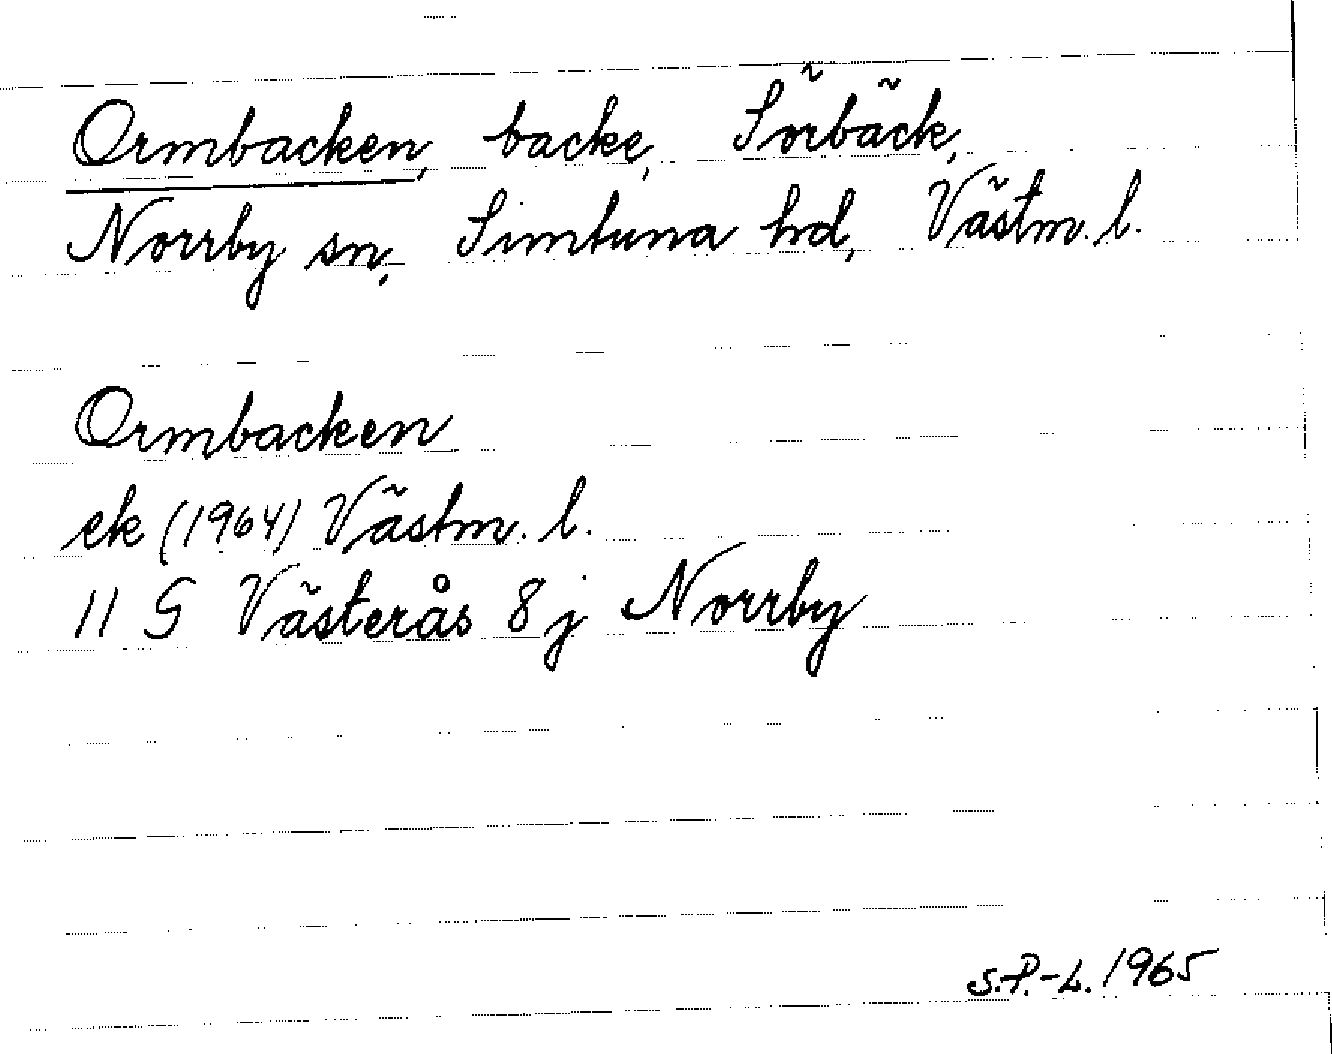 Ormbacken, backe, Sörbäck,
Norrby sn, Simtuna hd, Västm. l.
Ormbacken
ek (1964) Västm. l.
11 G Västerås 8 j Norrby
S.P.-L. 1965